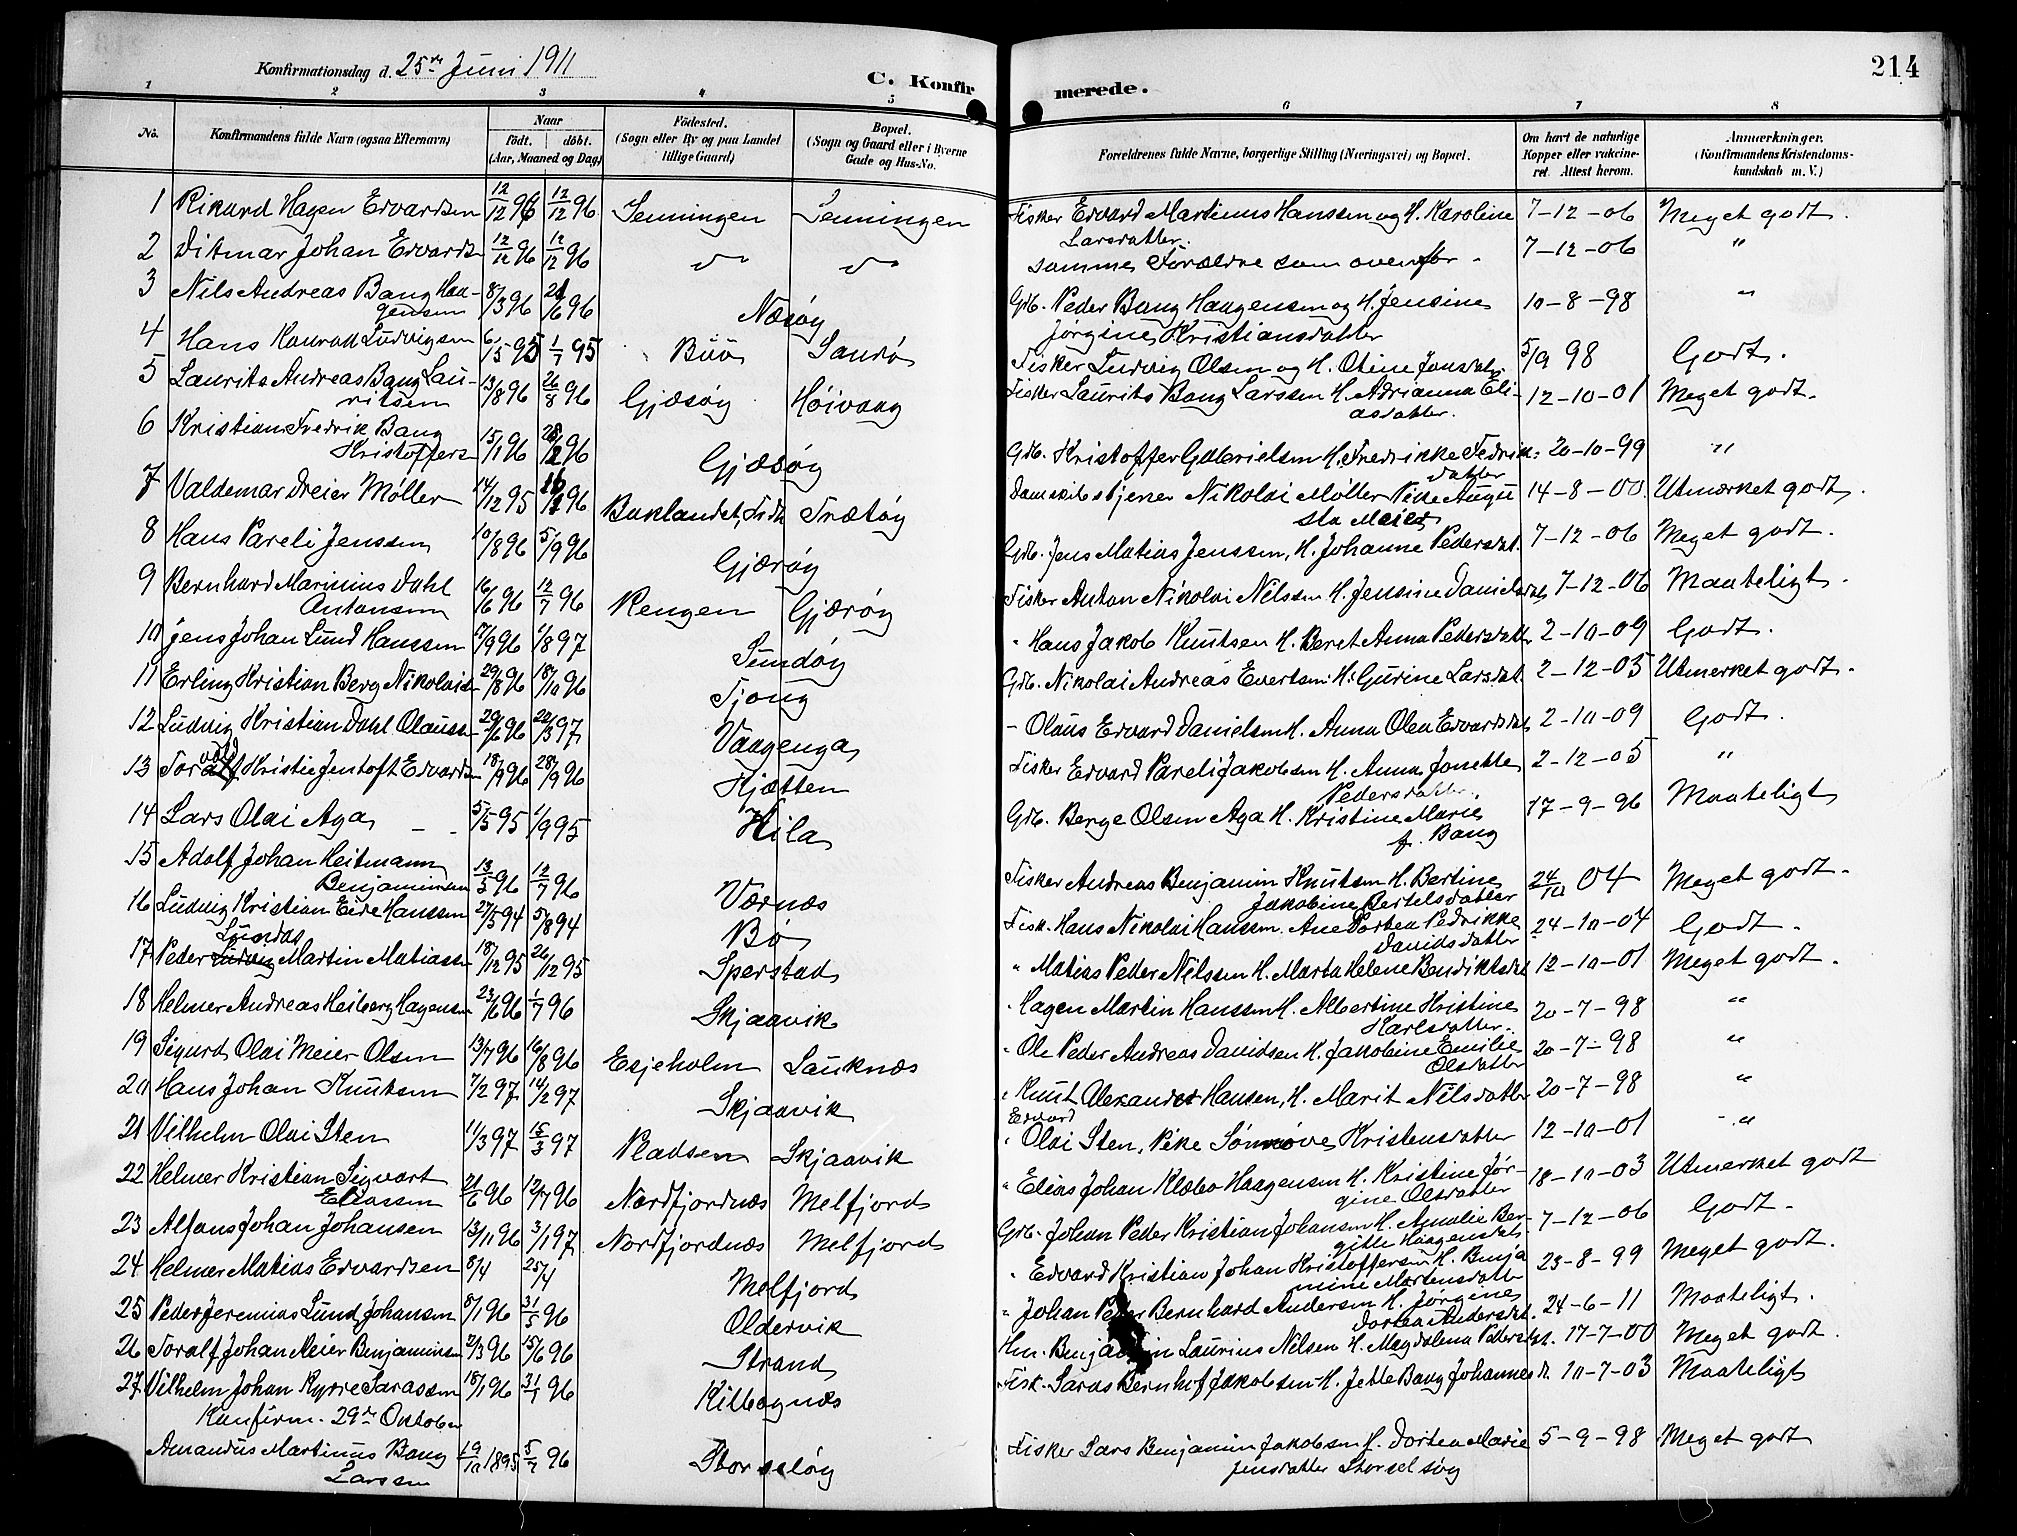 214
Konfirmationsdag d. 25de Juni 1911
C. Konfirmerede.
1 2 3 4 5 6 7 8
No. Konfirmandens fulde Navn (ogsaa Efternavn) Naar födt. döbt. (Aar, Maaned og Dag) Födested. (Sogn eller By og paa Landet tillige Gaard) Bopæl. (Sogn og Gaard eller i Byerne Gade og Hus-No. Forældrenes fulde Navne, borgerlige Stilling (Næringsvei) og Bopæl. Om havt de naturlige Kopper eller vakcineret. Attest herom. Anmærkninger. (Konfirmandens Kristendomskundskab m. V.)
1 Rikard Hagen Edvardsen 12/12 96 12/12 96 Selningen Selningen Fisker Edvard Martinus Hanssen og H. Karoline Larsdatter. 7-12-06 Meget godt.
2 Ditmar Johan Edvards 12/12 96 12/12 96 samme Forældre som ovenfor. 7-12-06 "
3 Nils Andreas Bang Haagensen 8/3 96 21/6 96 Næsøy Gdb. Peder Bang Haagensen og H. Jensine Jørgine Kristiansdatter 10-8-98 "
4 Hans Konrad Ludvigsen 6/5 95 1/7 95 Bøø Sandø Fisker Ludvig Olsen og H. Otine Jonsdat. 5/9 98 Godt.
5 Laurits Andreas Bang Lauritsen 13/8 96 26/8 96 Gjæsøy Høivaag Fisker Laurits Bang Larssen H. Adrianna Eliasdatter. 12-10-01 Meget godt.
6 Kristian Fredrik Bang Kristoffers 15/1 96 96 Gjæsøy Gdb. Kristoffer Gabrielsen H. Fredrikke Fedrik datter 20-10-99 "
7 Valdemar Dreier Møller 14/12 95 96 Baklandet, Trdh. Trætøy Nikolai Møller Pike Augusta Meier 14-8-00. Utmærket godt.
8 Hans Pareli Jenssen 10/8 96 5/9 96 Gjærøy Gdb. Jens Matias Jenssen, H. Johanne Pedersdat. 7-12-06 Meget godt.
9 Bernhard Marinius Dahl Antonsen 16/6 96 12/7 96 Rengen Gjærøy Fisker Anton Nikolai Nilssen H. Jensine Danielsdat. 7-12-06 Maateligt.
10 Jens Johan Lund Hanssen 21/9 96 1/8 97 Sundøy " Hans Jakob Knutsen H. Beret Anna Pedersdatt 2-10-09 Godt.
11 Erling Kristian Berg Nikolais 29/8 96 18/10 96 Tjong Gdb. Nikolai Andreas Evertsen H. Gurine Larsdat. 2-12-05 Utmerket godt.
12 Ludvig Kristian Dahl Olauss 29/6 96 22/3 97 Vaagenga - Olaus Edvard Danielsen H. Anna Olea Edvardsdat 2-10-09 Godt.
13 Toralf vald Kristie Jentoft Edvards 18/9 96 28/9 96 Hjætten Fisker Edvard Pareli Jakobsen H. Anna Jonette Pedersdatter. 2-12-05 "
14 Lars Olai Aga - - 5/5 95 1/9 95 Hila Gdb. Berge Olsen Aga H. Kristine Marie f. Bang 17-9-96 Maateligt
15 Adolf Johan Heitmann Benjaminsen 13/5 96 12/7 96 Værnæs Fisker Andreas Benjamin Knutsen H. Bertine Jakobine Bertelsdatter 24/10 04 Meget godt.
16 Ludvig Kristian Eide Hanssen 27/5 94 5/8 94 Bø Fisk. Hans Nikolai Hanssen. Ane Dortea Pedrikke Davidsdatter 24-10-04 Godt.
17 Peder Ludvig Lundås Martin Matiass 18/12 95 26/12 95 Sperstad " Matias Peder Nilssen H. Marta Helene Bendiktsdat 12-10-01 Meget godt.
18 Helmer Andreas Heiberg Hagens 23/6 96 1/7 96 Skjaavik " Hagen Martin Hanssen H. Albertine Kristine Karlsdatter. 20-7-98 "
19 Sigurd Olai Meier Olsen 13/7 96 16/8 96 Esjeholm Lauknæs " Ole Peder Andreas Davidsen H. Jakobine Emilie Olsdatter 20-7-98 "
20 Hans Johan Knutsen 7/2 97 14/2 97 Skjaavik " Knut Alexander Hansen, H. Marit Nilsdatter 20-7-98 "
21 Vilhelm Olai Sten 11/3 97 15/3 97 Pladsen Skjaavik " Edvard Olai Sten, Pike Sønnøve Kristensdatter 12-10-01 "
22 Helmer Kristian Sigvart Eliassen 21/6 96 12/7 96 Nordfjordnæs Melfjord " Elias Johan Klæbo Haagensen H. Kristine Jørgine Olsdatter 18-10-03 Utmerket godt
23 Alfons Johan Johansen 13/11 96 3/1 97 Nordfjordnæs Melfjord Gdb. Johan Peder Kristian Johansen H. Amalie Bergitte Haagensdat. 7-12-06 Godt.
24 Helmer Matias Edvardsen 8/4 25/4 Melfjord " Edvard Kristian Johan Kristoffersen H. Benjamine Mortensdatter 23-8-99 Meget godt.
25 Peder Jeremias Lund Johansen 8/1 96 31/5 96 Oldervik " Johan Peder Bernhard Andersen H. Jørgine Dortea Andersdat. 24-6-11 Maateligt.
26 Toralf Johan Meier Benjamins 21/3 96 15/6 96 Strand Hm. Benjamin Laurius Nilsen H. Magdalena Pedersdat. 17-7-00 Meget godt.
27 Vilhelm Johan Kyrre Sarassen 18/1 96 31/ 96 Kilbognæs Fisk. Saras Bernhof Jakobsen H. Jette Bang Johannes d. 10-7-03 Maateligt
Konfirm. 29de Oktober
Amandus Martinus Bang Larssen 19/10 1895 5/7 96 Storseløy Fisker Lars Benjamin Jakobsen H. Dortea Marie Jensdatter Storselsøy 5-9-98 Meget godt